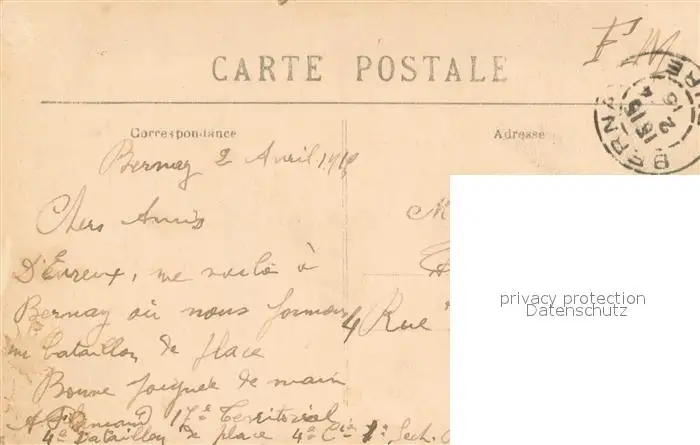 F M
CARTE POSTALE
Correspondance
Adresse
BERN
EURE
1515
2
Bernay 2 Avril 191
Chers Amis
M
D'Evreux, me voilà à
Bernay où nous formons
4 Rue
un bataillon de place
Bonne poignée de main
17e Territorial
4e Bataillon de place 4e Cie 1e Sect.
privacy protection
Datenschutz